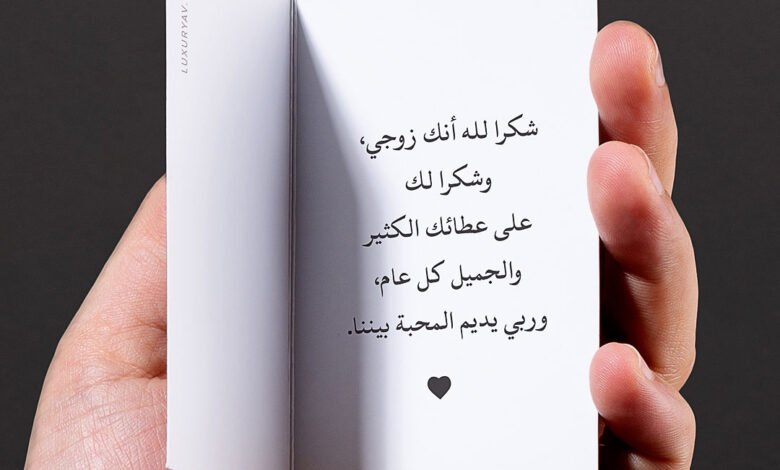 LUXURYAV.
شكرا لله أنك زوجي،
وشكرا لك
على عطائك الكثير
والجميل كل عام،
وربي يديم المحبة بيننا.